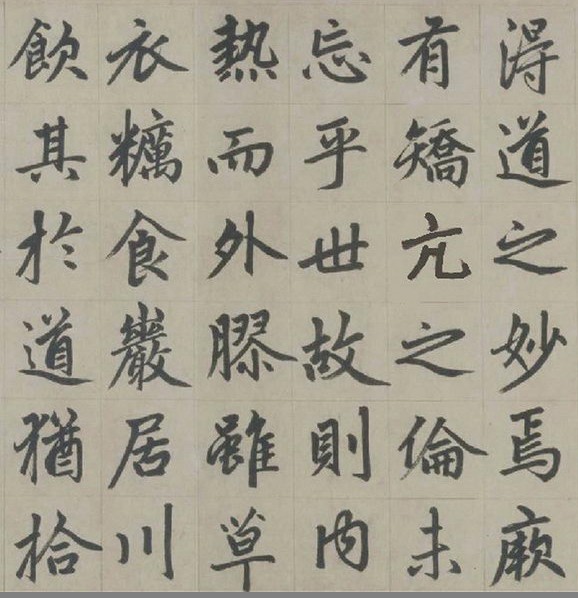 淂道之妙焉厥
有矯亢之倫未
忘乎世故則内
熱而外膠雖草
衣糲食巖居川
飲其於道猶拾